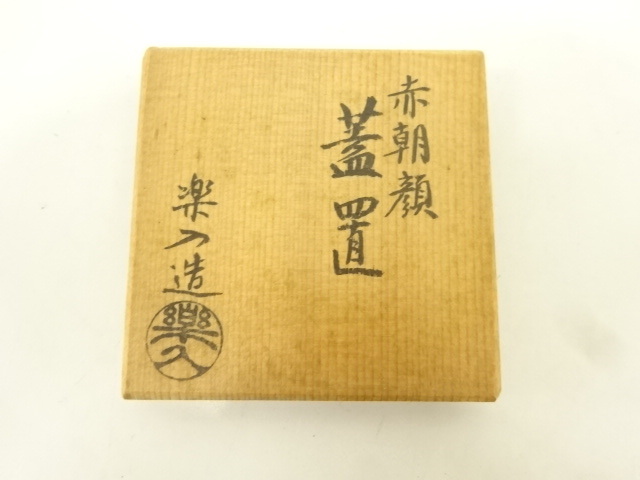 赤朝顔
蓋置
楽入造
樂入